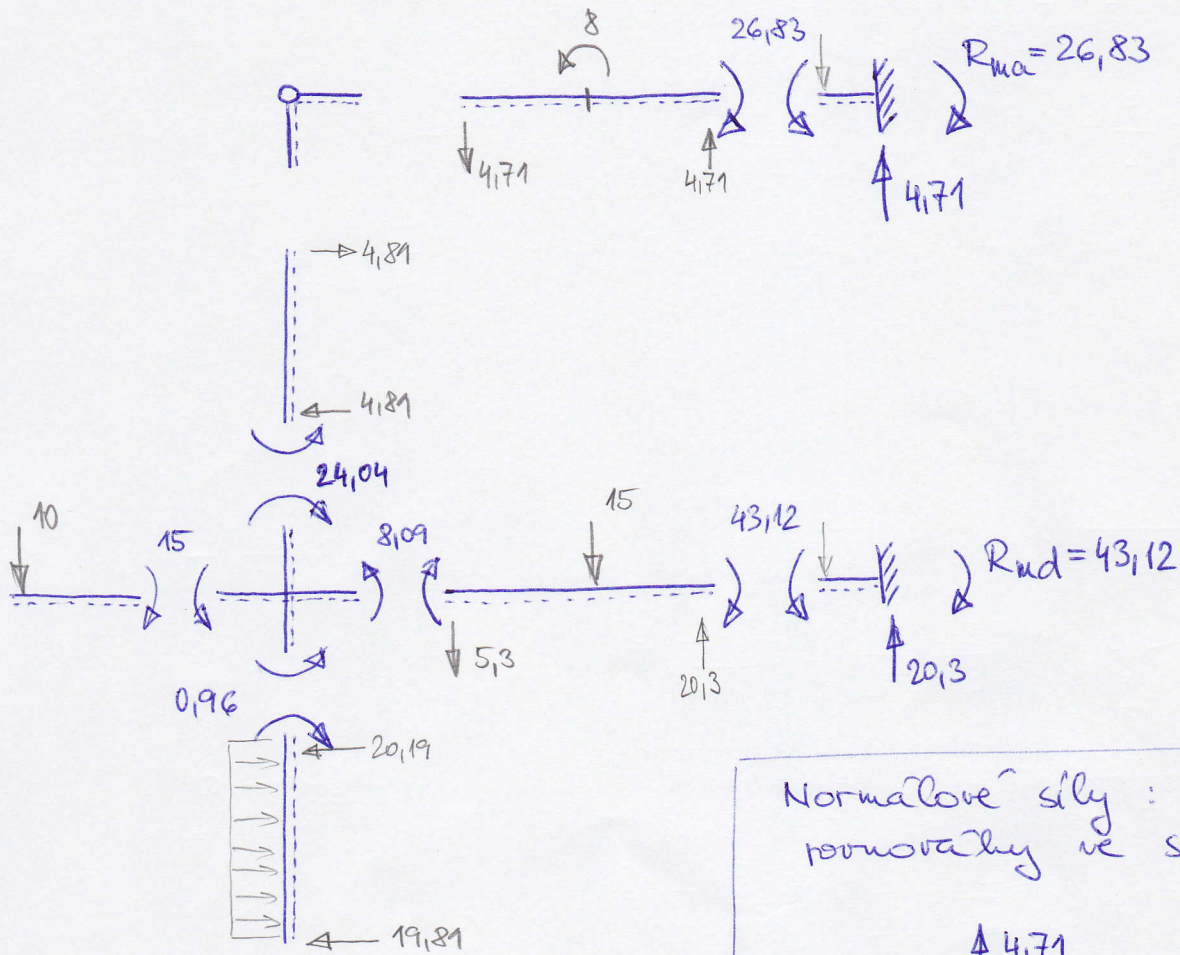 8
26,83
R_ma = 26,83
4,71
4,71
4,71
4,81
4,81
24,04
10
15
8,09
15
43,12
R_md = 43,12
5,3
20,3
20,3
0,96
20,19
19,81
Normálové síly :
rovnováhy ve s
4,71